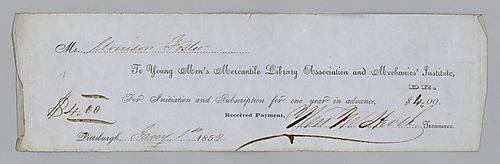 Mr. Morrison Foster
To Young Men's Mercantile Library Association and Mechanics' Institute,
DR.
For Initiation and Subscription for one year in advance, $4.00.
$4.00
Received Payment,
Treasurer.
Pittsburgh, 1852